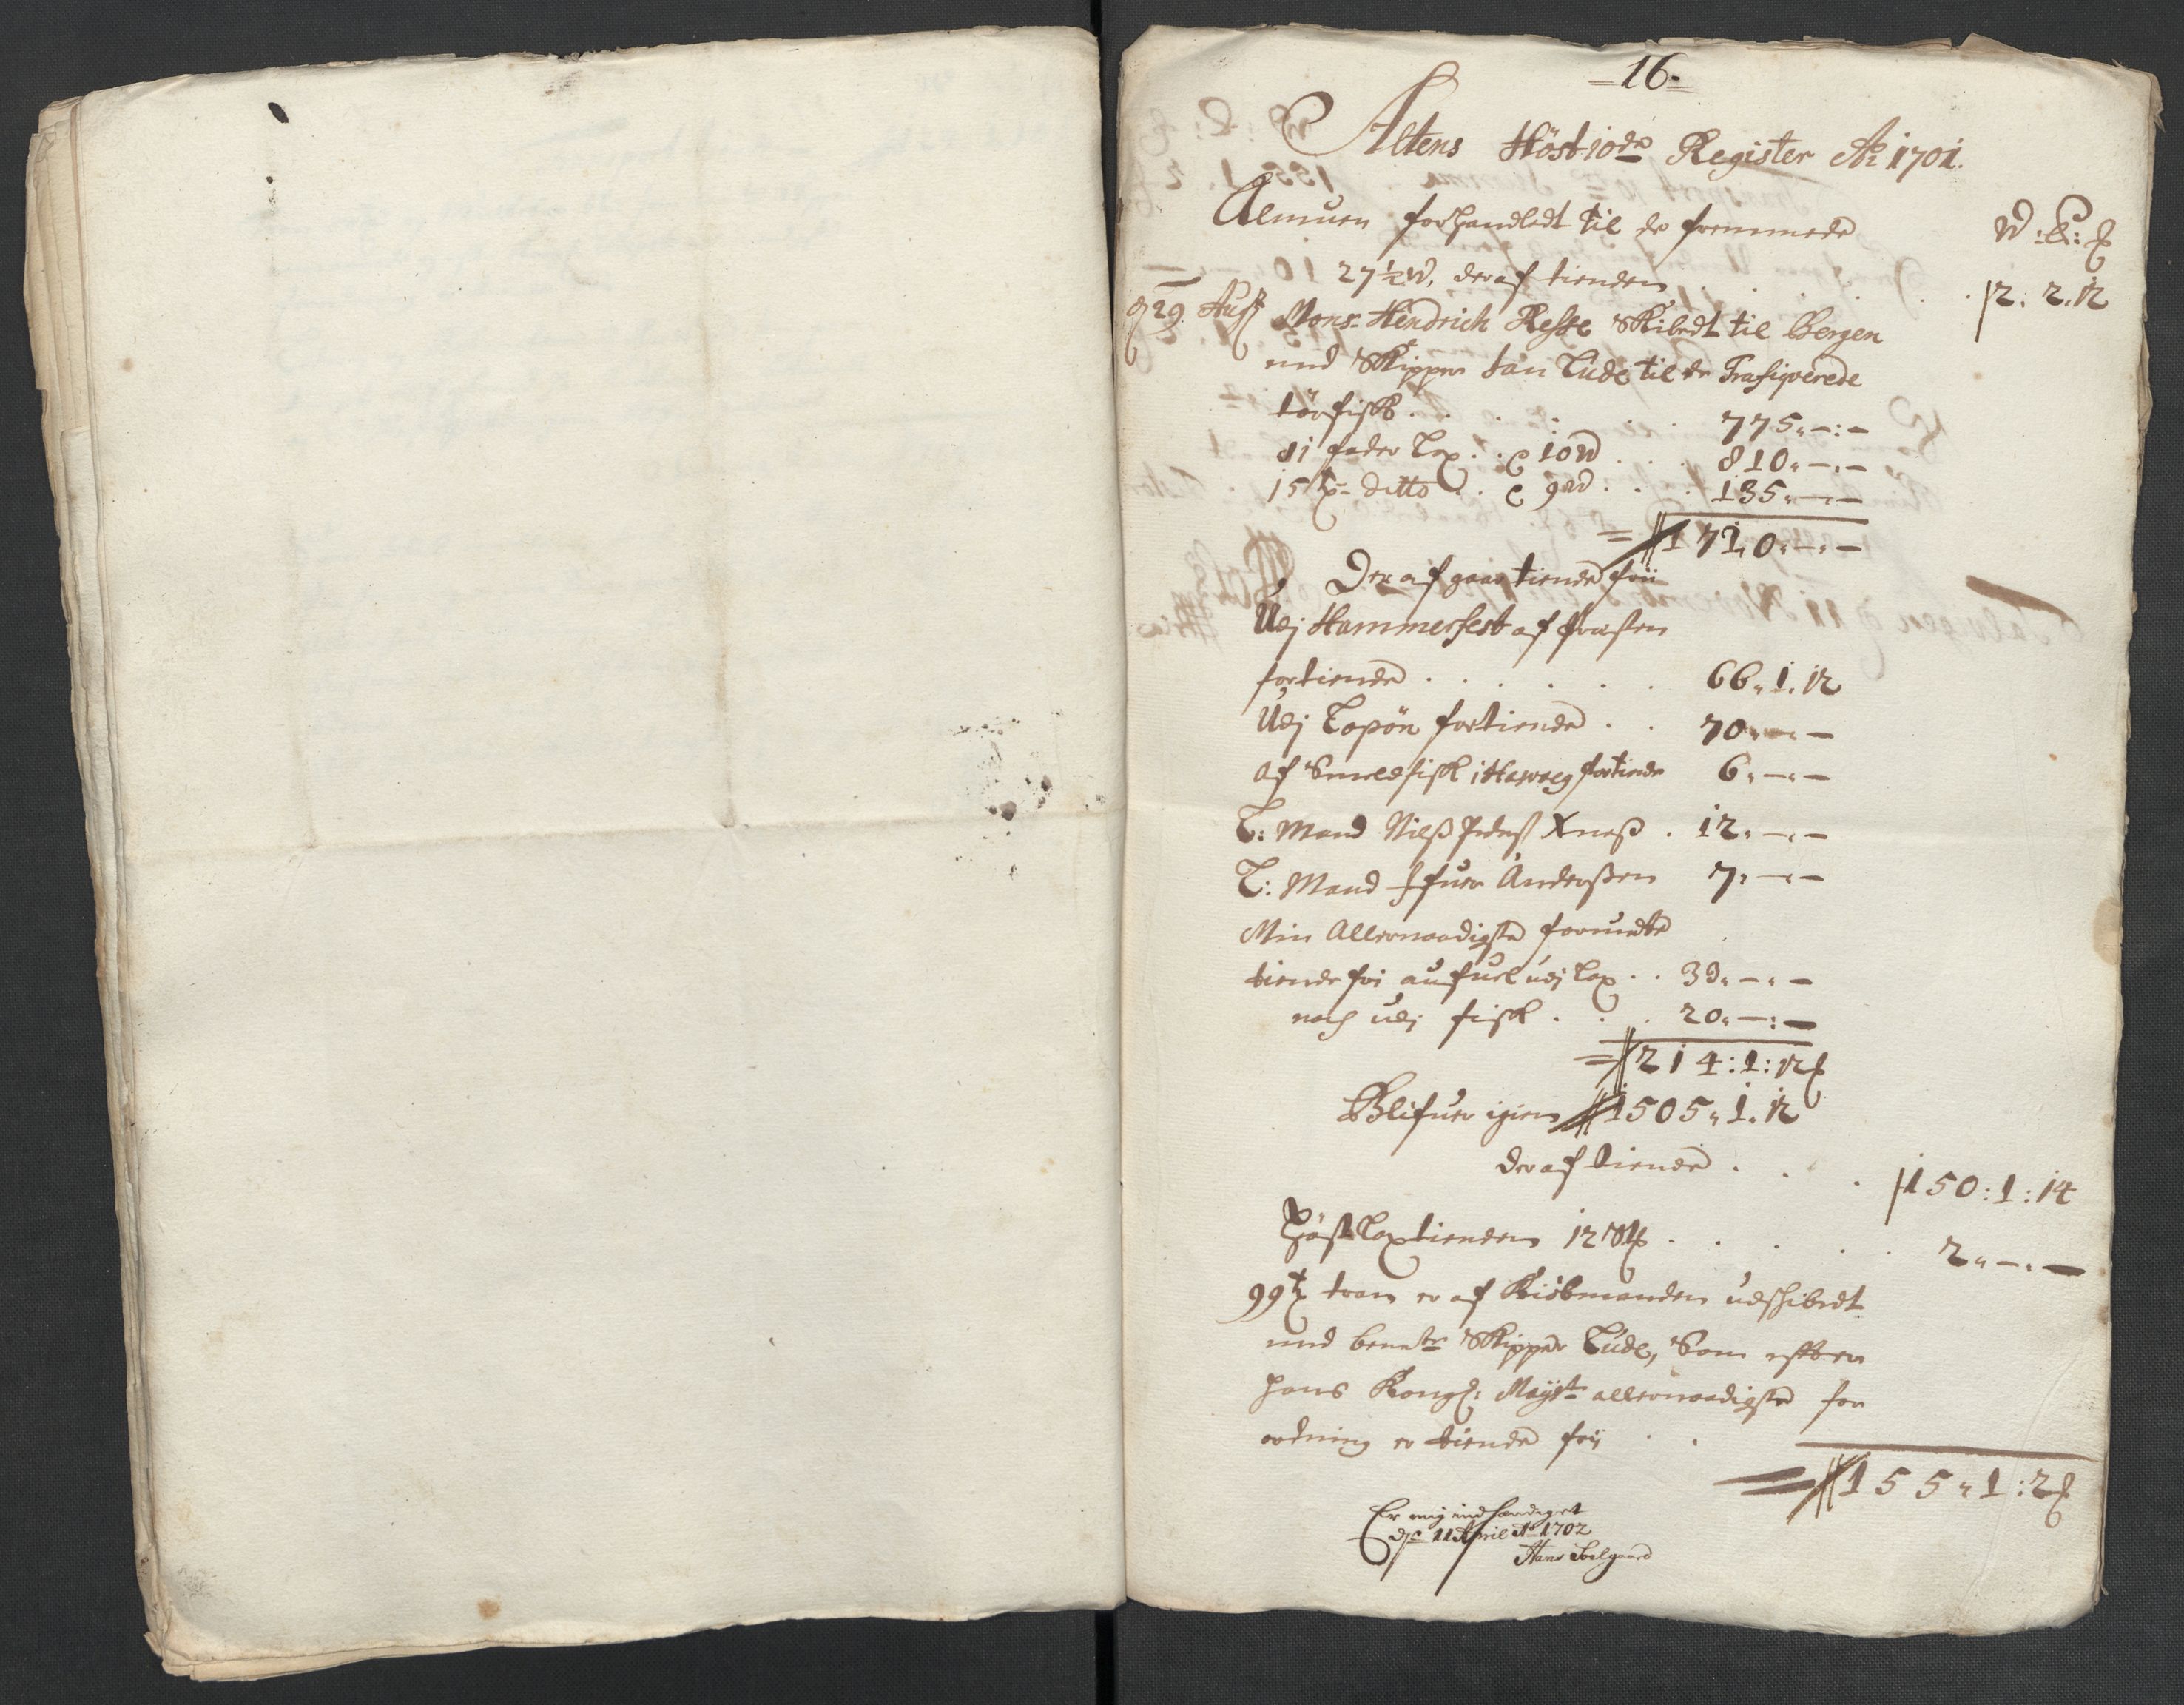 =16=
Altens Höst 10de Register Ao 1701.
Almuen forhandledt til de fremmede W: P: #
27½ W, deraf tienden . . . . 2. 2. 12
d 29 Aug Mons. Hendrich Resse Skibedt til Bergen
med Skipper Jan Lude til de Trafiqverede
törfisk . . . . . . 775,, - : -
81 fader Lax . . c 10 W . . . 810,, - . -
15 T. ditto . . c 9 W . . . 135,, - . -
= 1720,, - . -
Der af gaar tiende frii
Udj Hammerfest af
fortiende . . . . . . 66,, 1. 12
Udj Lopön fortiende . . 70,, - . -
Af Smeelfisk i Hasvaeg fortiende 6,, - . -
L: Mand Nilß Xneß . 12,, - . -
L: Mand Ifuer Anderßen 7,, - . -
Min Allernaadigste forundte
tiende fri aufuel udj Lax . . 33,, - . -
noch udj fisk . . . 20,, - : -
= 214 : 1 : 12 #
Blifuer igien 1505,, 1. 12
der af tiende . . . 150 : 1 : 14
Höst Laxtienden 12 W# . . . . . 2,, - . -
99 T tran er af Kiöbmanden udskibedt
med bemte Skipper Lude, Som efter
hans Kongl: Mayts allernaadigste for
ordning er tiende frij . .
= 155,, 1 : 2 #
Er mig indhendiget
d 11 April Ao 1702
Hans Soelgaard